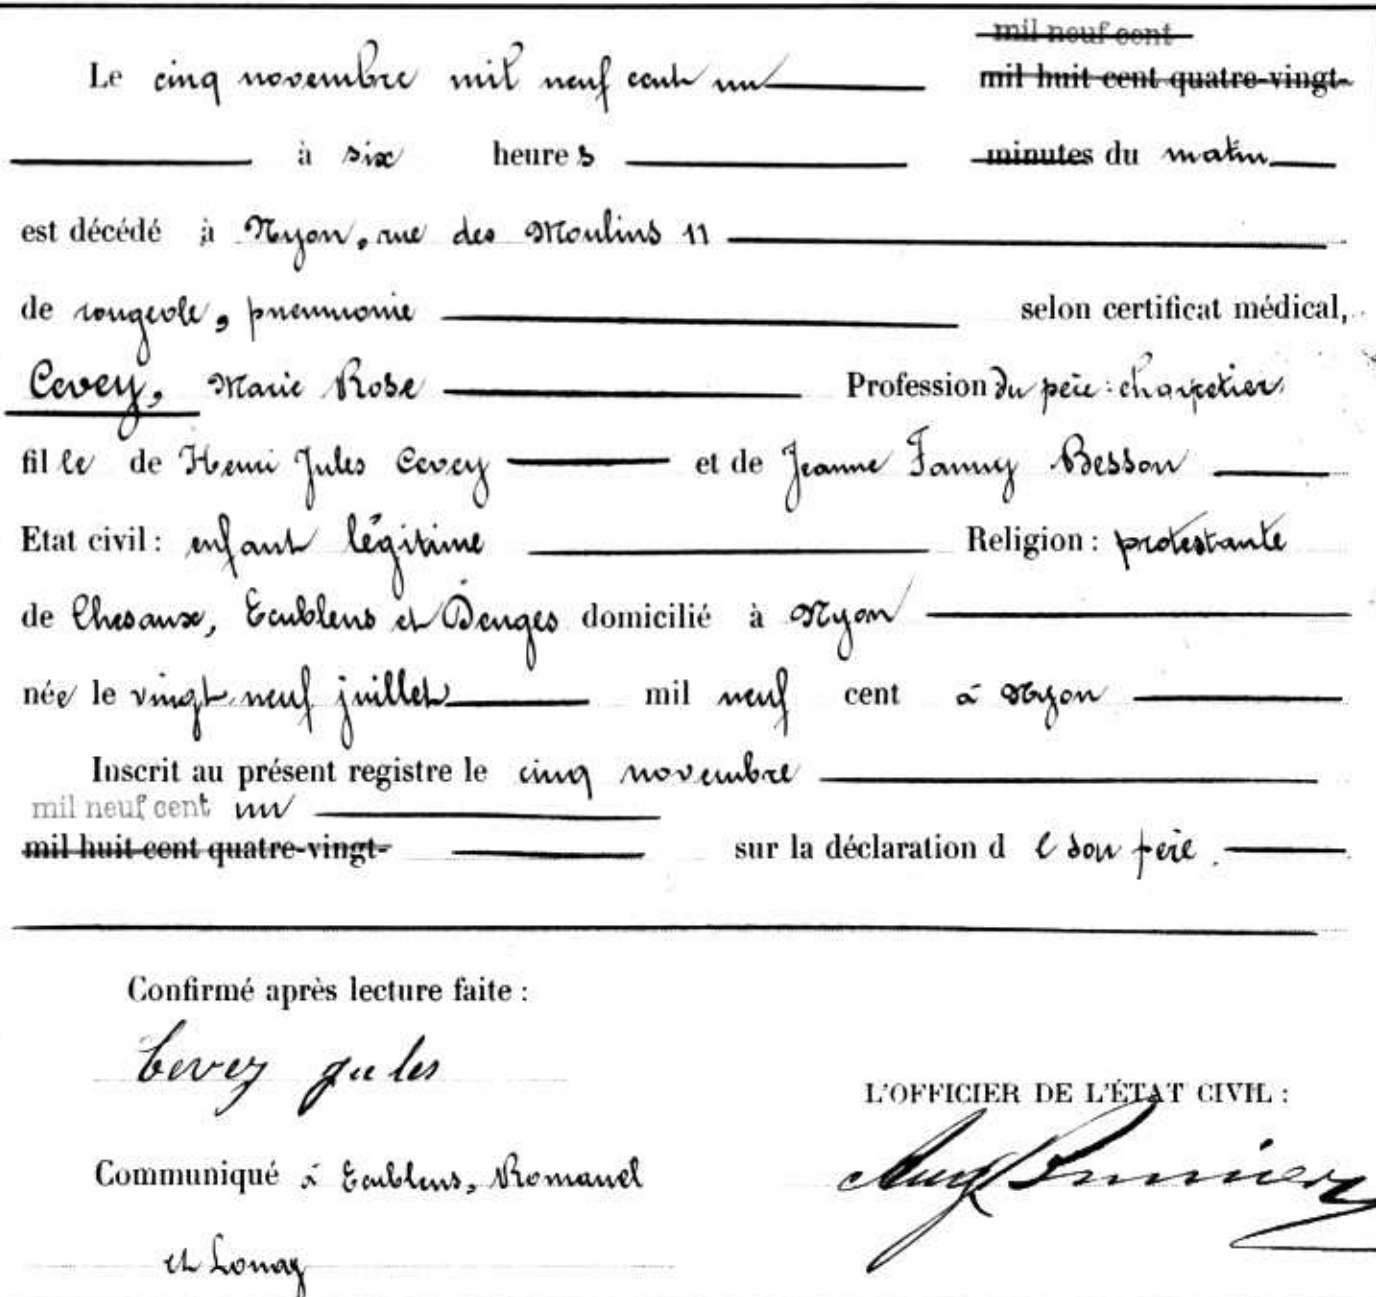 mil neuf cent
Le cinq novembre mil neuf cent un mil huit cent quatre-vingt-
à six heures minutes du matin
est décédé à Nyon, rue des Moulins 11
de rougeole, pneumonie selon certificat médical,
Cevey, Marie Rose Profession du père : charretier
fille de Henri Jules Cevey et de Jeanne Fanny Besson
Etat civil : enfant légitime Religion : protestante
de Chesaux, Ecublens et Denges domicilié à Nyon
née le vingt-neuf juillet mil neuf cent à Nyon
Inscrit au présent registre le cinq novembre
mil neuf cent un
mil huit cent quatre-vingt- sur la déclaration de son père.
Confirmé après lecture faite :
Cevey Jules
L'OFFICIER DE L'ÉTAT CIVIL :
Communiqué à Ecublens, Romanel
et Lonay